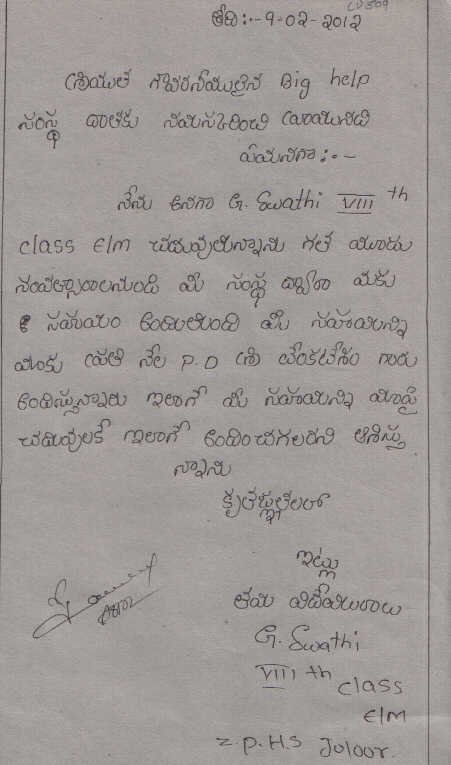 తేది:-9-02-2012
శ్రీయుత గౌరవనీయులైన Big help
సంస్థ దాతకు నమస్కరించి వ్రాయునది
ఏమనగా:--
నేను అనగా G. Swathi VIII th
class E/m చదువుతున్నాను గత మూడు
సంవత్సరాలనుండి మీ సంస్థ ద్వారా మకు
సహాయం అందుతుంది మీ సహాయాన్ని
మాకు ప్రతి నెల P.D శ్రీ వెంకటేశం గారు
అందిస్తున్నారు ఇలాగే మీ సహాయాన్ని మాపై
చదువులకే ఇలాగే అందించగలరని ఆశిస్తు
న్నాను
కృతజ్ఞతలతో
ఇట్లు
తమ విదేయురాలు
G. Swathi
VIII th class
E/m
Z.P.H.S Juloor.